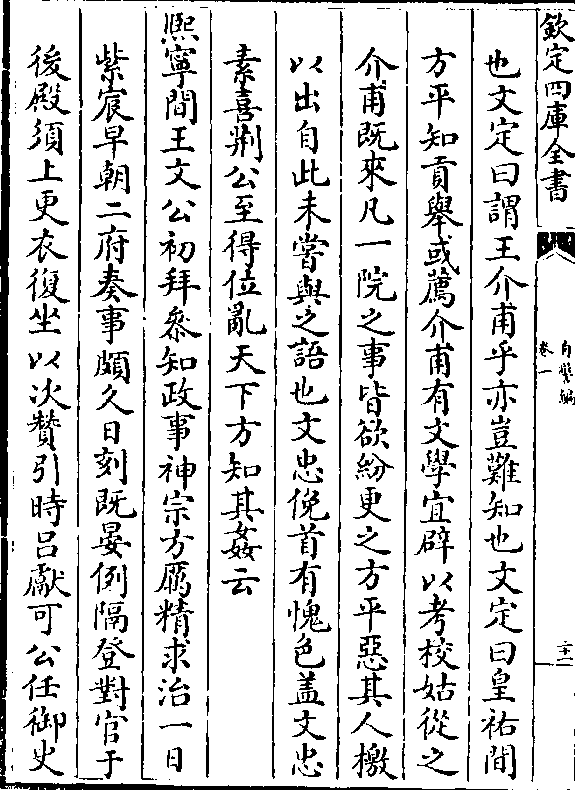 欽定四庫全書
自警編
卷一
二十一
也文定曰謂王介甫乎亦豈難知也文定曰皇祐間
方平知貢舉或薦介甫有文學宜辟以考校姑從之
介甫既來凡一院之事皆欲紛更之方平惡其人檄
以出自此未嘗與之語也文忠俛首有愧色盖文忠
素喜荆公至得位亂天下方知其姦云
熙寧間王文公初拜叅知政事神宗方厲精求治一日
紫宸早朝二府奏事頗久日刻既晏例隔登對官于
後殿須上更衣復坐以次贊引時吕獻可公任御史